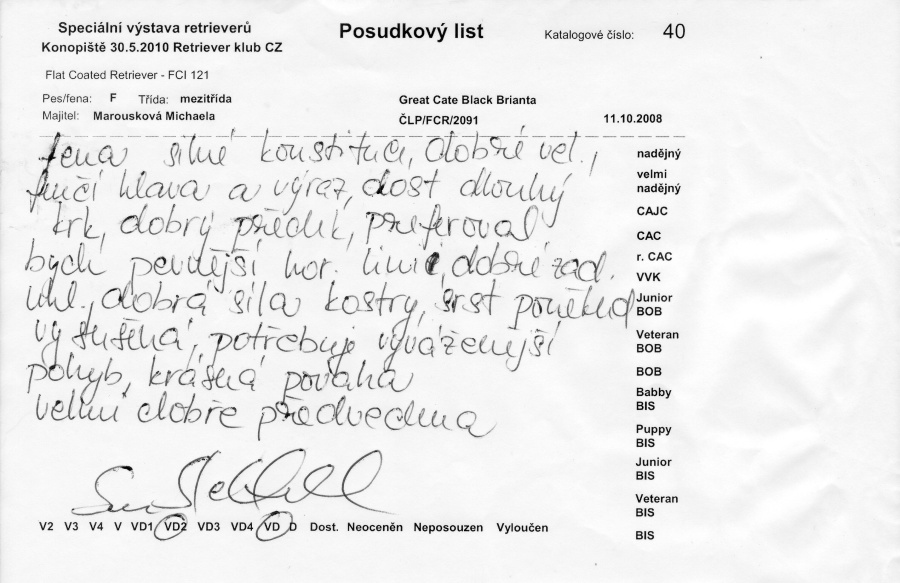 Speciální výstava retrieverů
Konopiště 30.5.2010 Retriever klub CZ
Posudkový list
Katalogové číslo: 40
Flat Coated Retriever - FCI 121
Pes/fena: F Třída: mezitřída
Majitel: Marousková Michaela
Great Cate Black Brianta
ČLP/FCR/2091 11.10.2008
fena silné konstituci, dobré vel.,
fenčí hlava a výraz, dost dlouhý
krk, dobrý předek, preferoval
bych pevnější hor. linii, dobré zad.
uhl., dobrá síla kostry, srst poněkud
vysušená, potřebuje vyváženější
pohyb, krásná povaha
velmi dobře předvedena
nadějný
velmi
nadějný
CAJC
CAC
r. CAC
VVK
Junior
BOB
Veteran
BOB
BOB
Babby
BIS
Puppy
BIS
Junior
BIS
Veteran
BIS
BIS
V2 V3 V4 V VD1 VD2 VD3 VD4 VD D Dost. Neoceněn Neposouzen Vyloučen